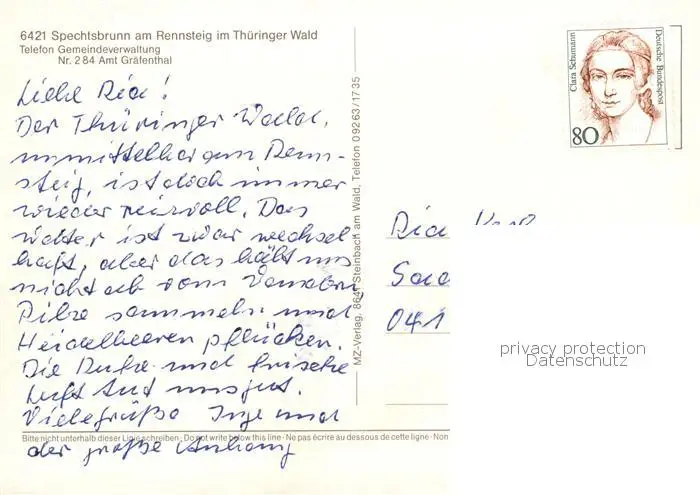 6421 Spechtsbrunn am Rennsteig im Thüringer Wald
Telefon Gemeindeverwaltung
Nr. 284 Amt Gräfenthal
Liebe Ria!
Der Thüringer Wald,
unmittelbar am Renn-
steig, ist doch immer
wieder reizvoll. Das
Wetter ist zwar wechsel
haft, aber das hält uns
nicht ab vom Wandern,
Pilze sammeln und
Heidelbeeren pflücken.
Die Ruhe und frische
Luft tut uns gut.
Viele Grüße Inge und
der große Anhang
Bitte nicht unterhalb dieser Linie schreiben · Do not write below this line · Ne pas écrire au dessous de cette ligne · Non
MZ-Verlag, 8641 Steinbach am Wald, Telefon 09263/1735
Clara Schumann
Deutsche Bundespost
80
Ria
041
privacy protection
Datenschutz